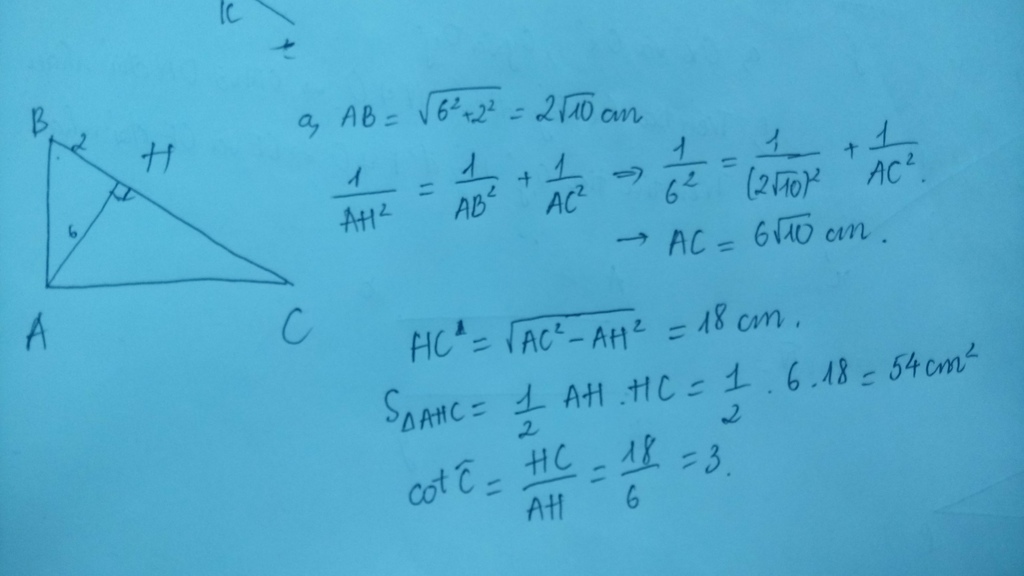 K
t
B
2
H
6
A
C
a, AB = √(6²+2²) = 2√10 cm
1/AH² = 1/AB² + 1/AC² ⇒ 1/6² = 1/(2√10)² + 1/AC².
→ AC = 6√10 cm.
HC = √(AC²-AH²) = 18 cm.
S△AHC = 1/2 AH.HC = 1/2 . 6 . 18 = 54 cm²
cot Ĉ = HC/AH = 18/6 = 3.